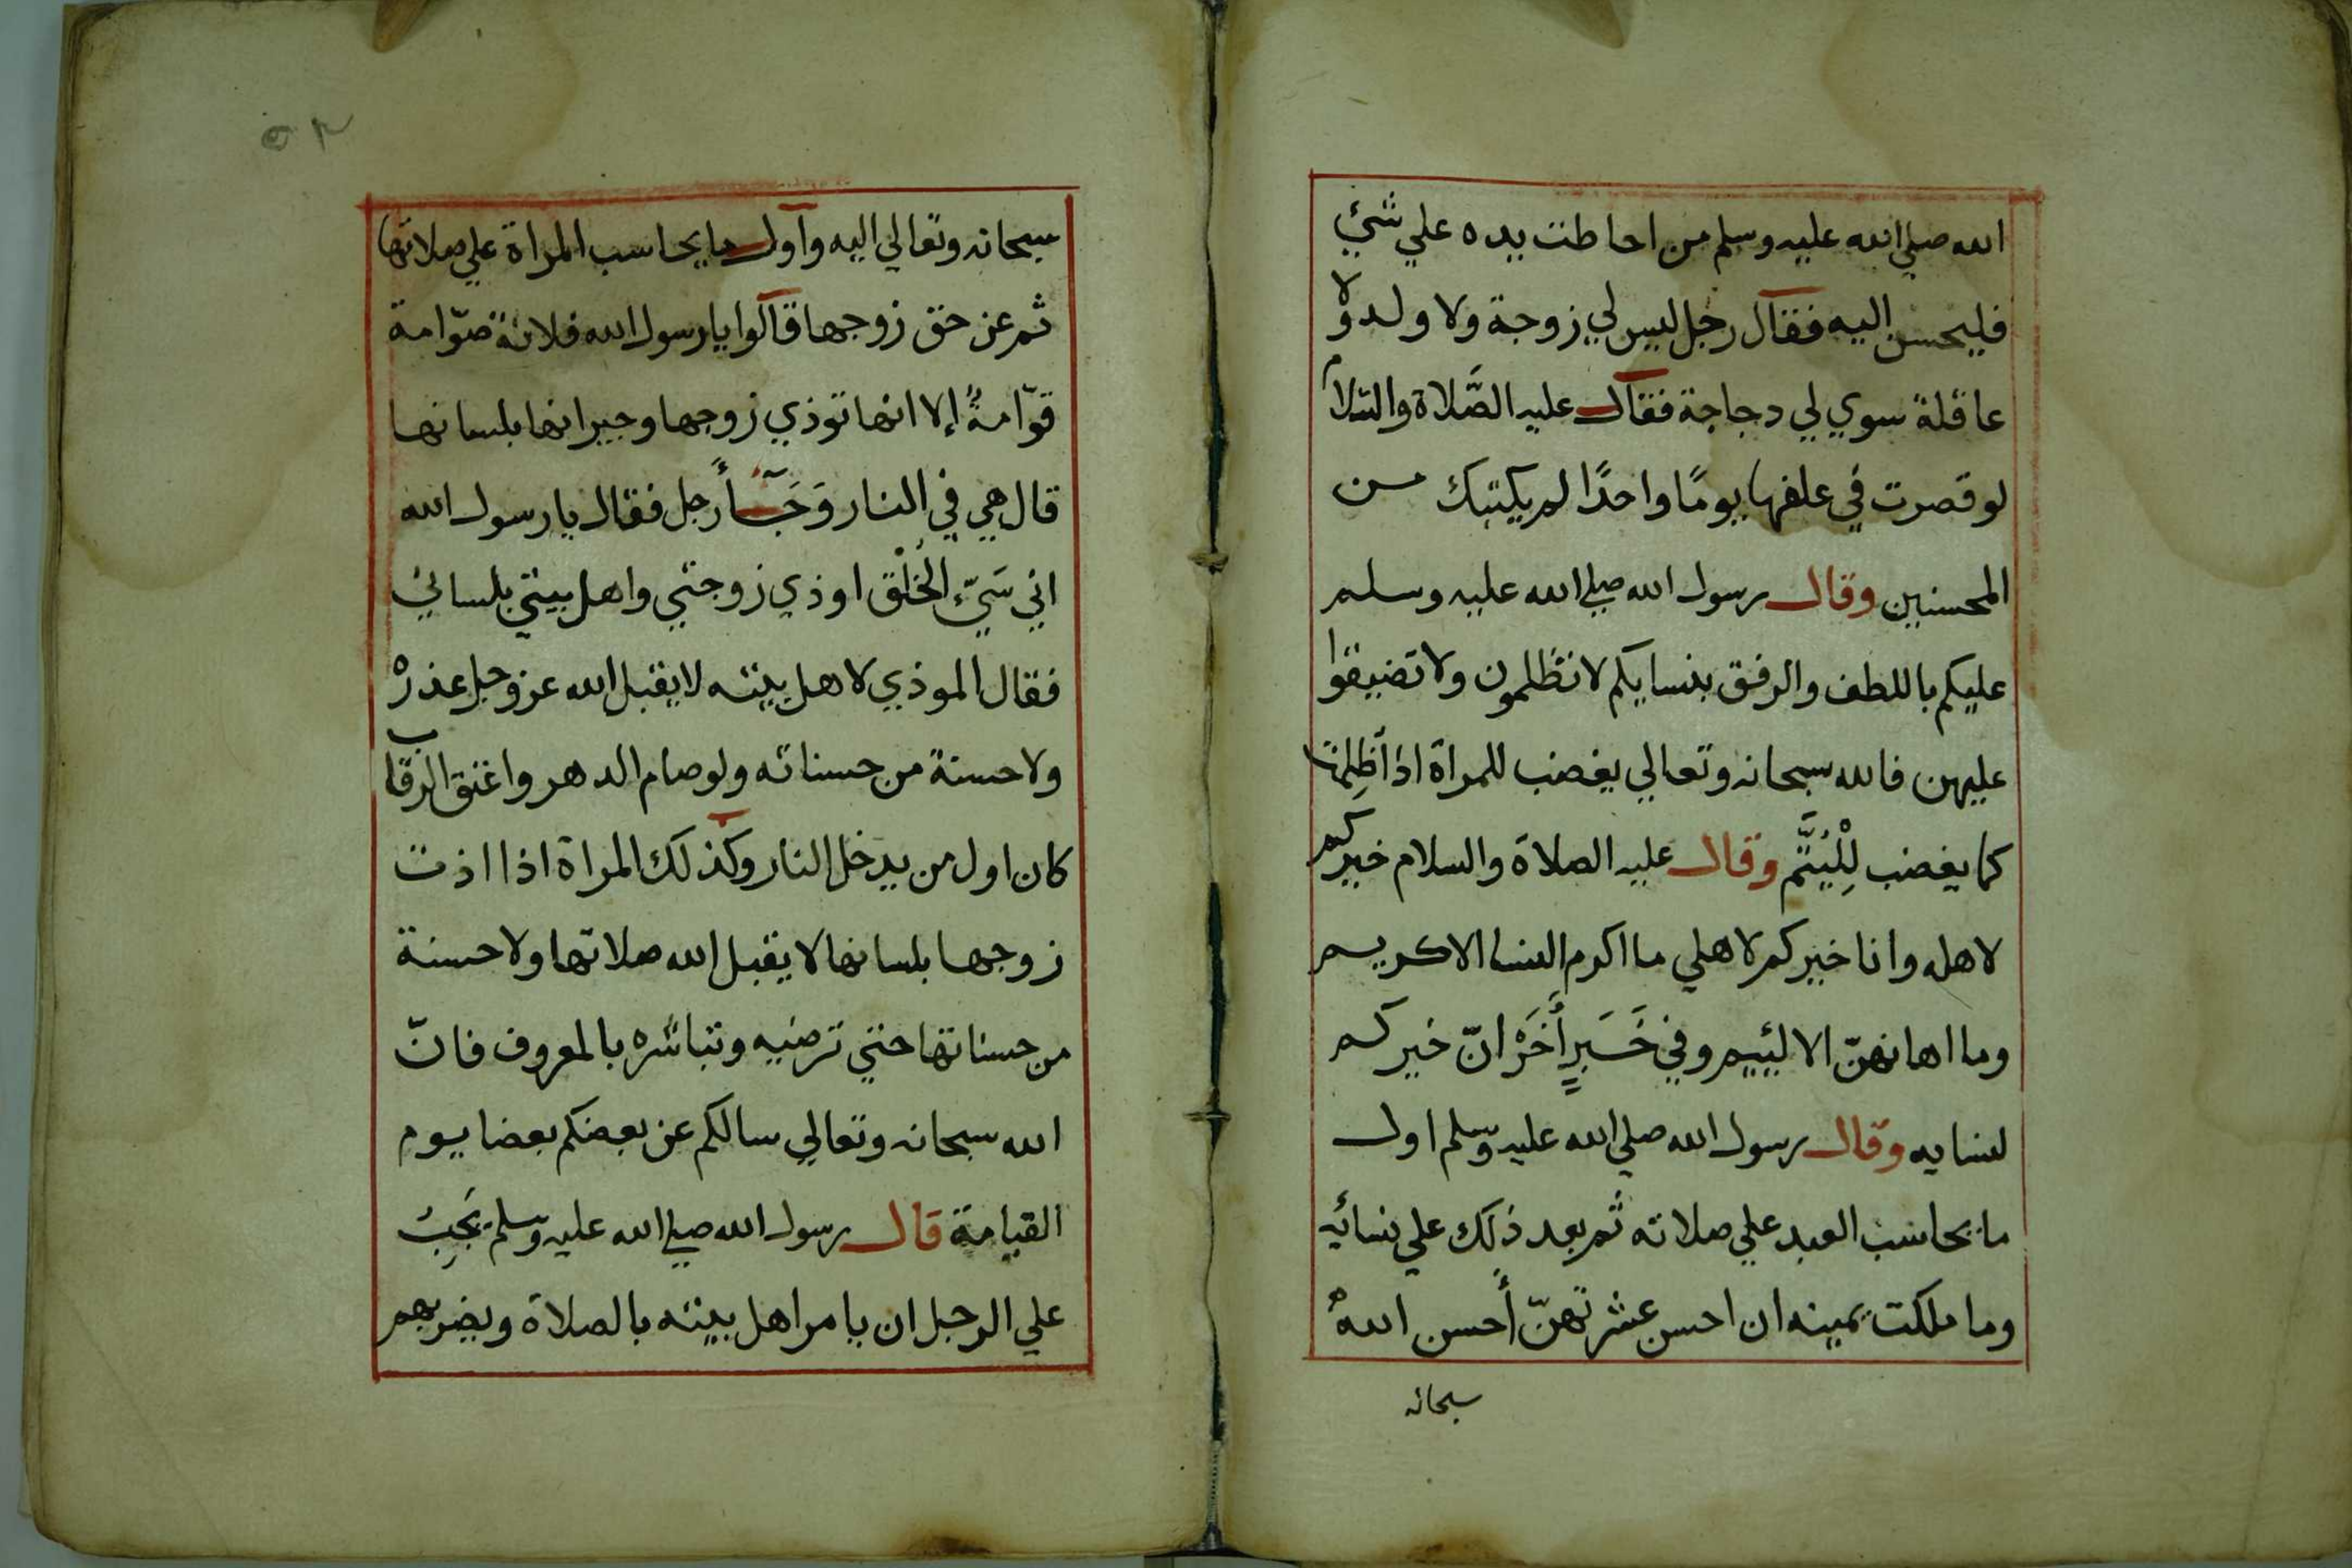 الله صلي الله عليه وسلم من احاطت يده علي شئ
فليحسن اليه فقال رجل ليس لي زوجة ولا ولد ولا
عاقلة سوي لي دجاجة فقال عليه الصَّلاة والسّلام
لو قصرت في علفها يومًا واحدًا لم يكتبك من
المحسنين وقال رسول الله صلي الله عليه وسلم
عليكم باللطف والرفق بنسايكم لا تظلمون ولا تضيقوا
عليهن فالله سبحانه وتعالي يغضب للمراة اذا ظلمت
كما يغضب لِلْيُتَّم وقال عليه الصلاة والسلام خيركم
لاهله وانا خيركم لاهلي ما اكرم النسا الا كريم
وما اهانهنّ الا لئيم وفي خَبَرٍ أَخَرْ انّ خيركم
لنسايه وقال رسول الله صلي الله عليه وسلم اول
ما يحاسب العبد علي صلاته ثم بعد ذلك علي نسائه
وما ملكت يمينه ان احسن عشرتهنّ أحسن الله
سبحانه
٥٢
سبحانه وتعالي اليه واول ما يحاسب المراة علي صلاتها
ثم عن حق زوجها قالوا يا رسول الله فلانة صوّامة
قوّامةً إلا انها توذي زوجها وجيرانها بلسانها
قال هي في النار وَجَآأ رجل فقال يا رسول الله
اني سَيّء الخُلْق اوذي زوجتي واهل بيتي بلساني
فقال الموذي لاهل بيته لا يقبل الله عز وجل عذرْ
ولا حسنة من حسناته ولو صام الدهر واعتق الرقاب
كان اول من يدخل النار وكذلك المراة اذا اذت
زوجها بلسانها لا يقبل الله صلاتها ولا حسنة
من حسناتها حتي ترضيه وتباشره بالمعروف فانّ
الله سبحانه وتعالي سالكم عن بعضكم بعضا يوم
القيامة قال رسول الله صلي الله عليه وسلم يَجِبُ
علي الرجل ان يامر اهل بيته بالصلاة ويضربهم